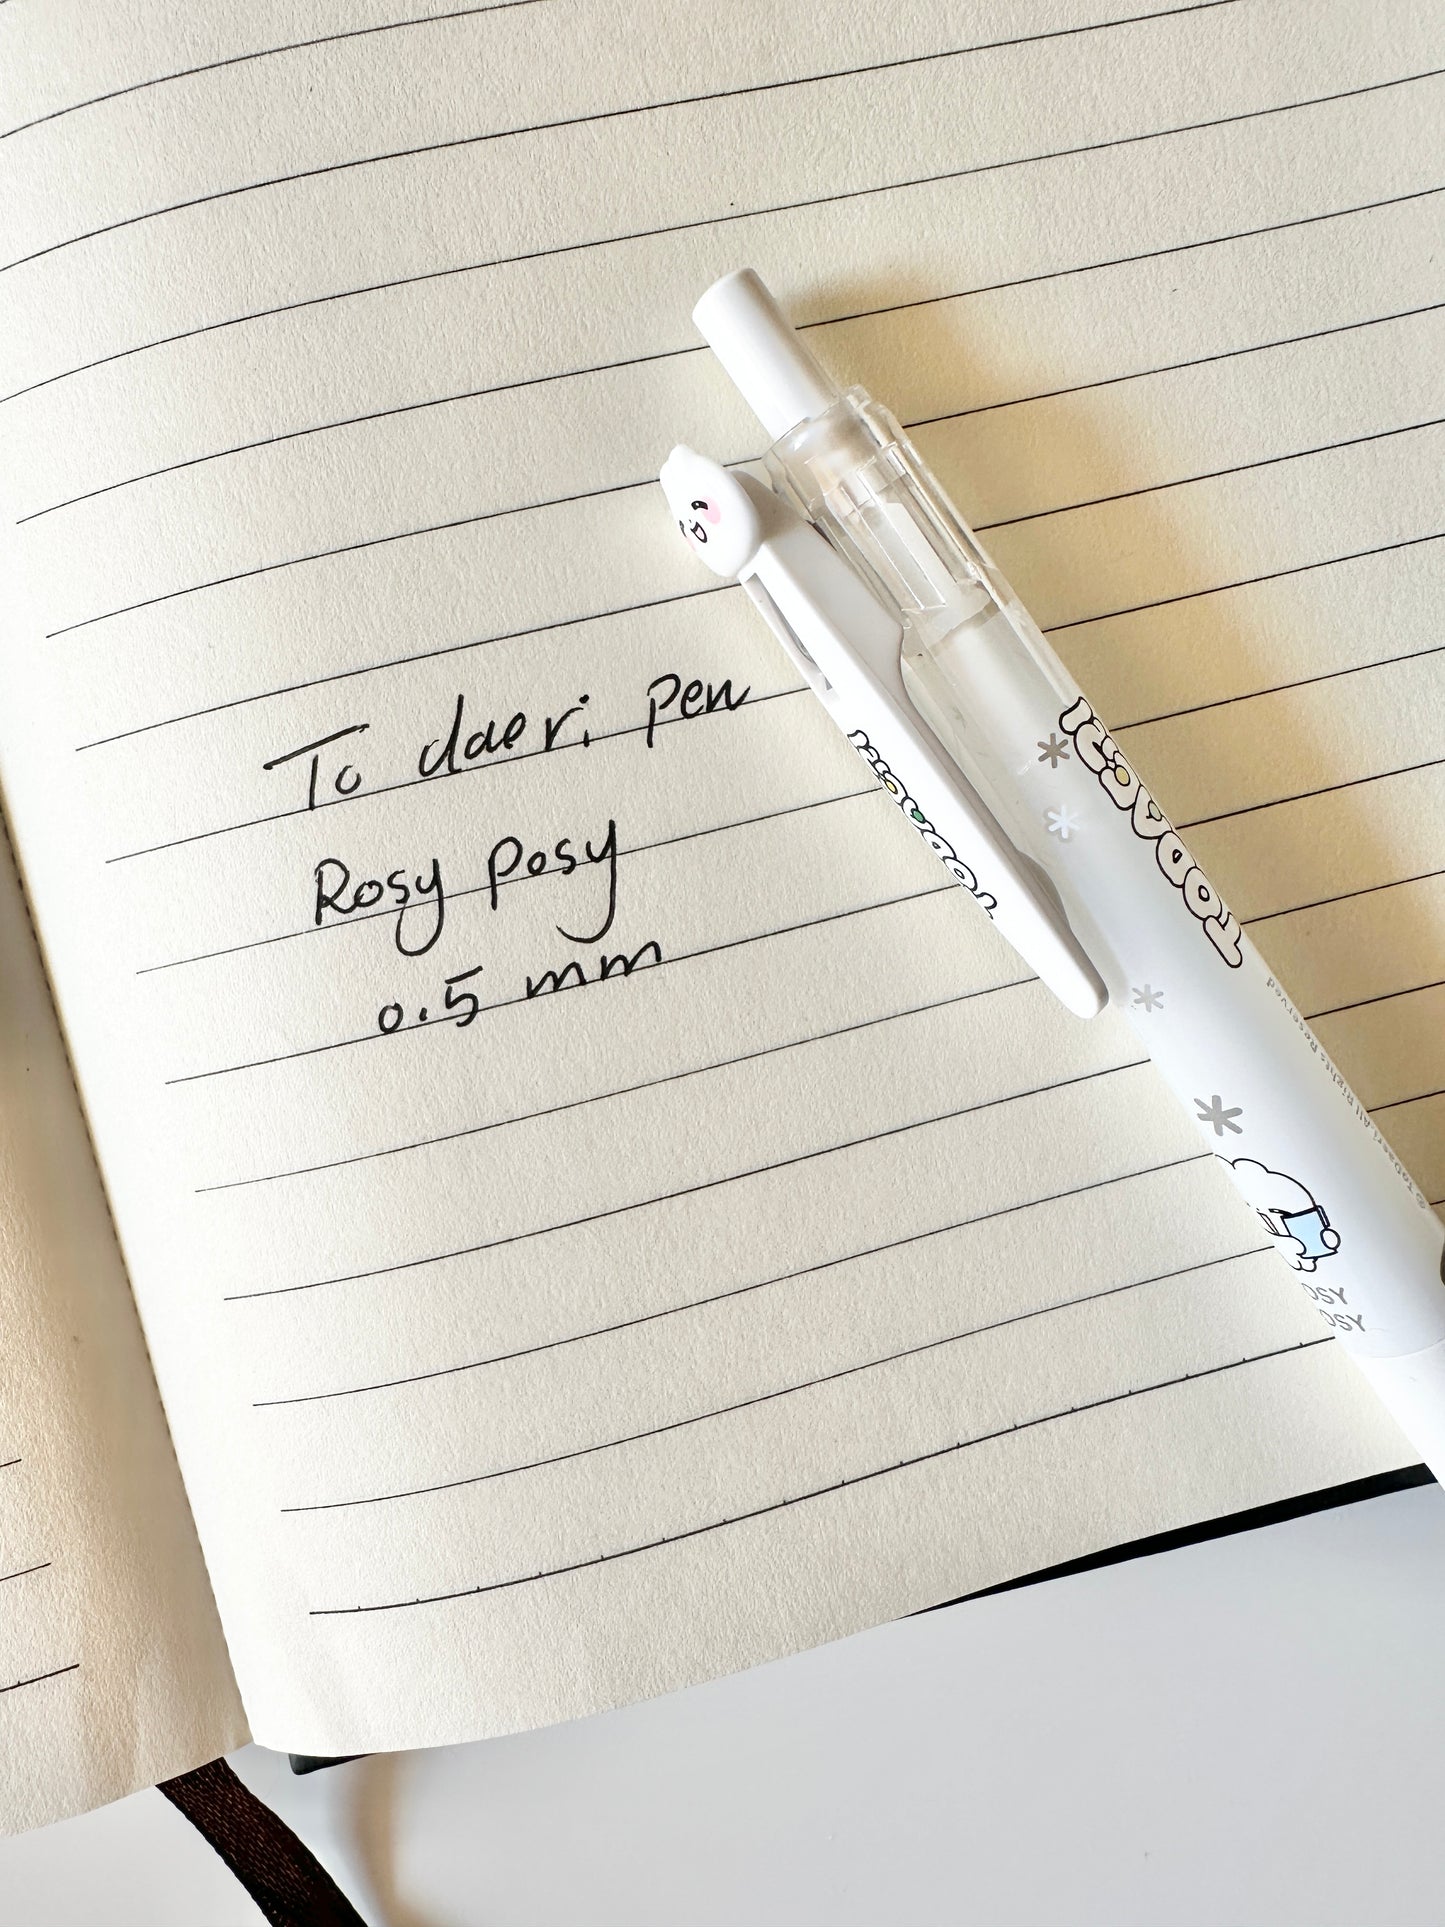 To daeri pen
Rosy Posy
0.5 mm
ToDAERi
ToDAERi
© ToDaeri All Rights Reserved
OSY
OSY